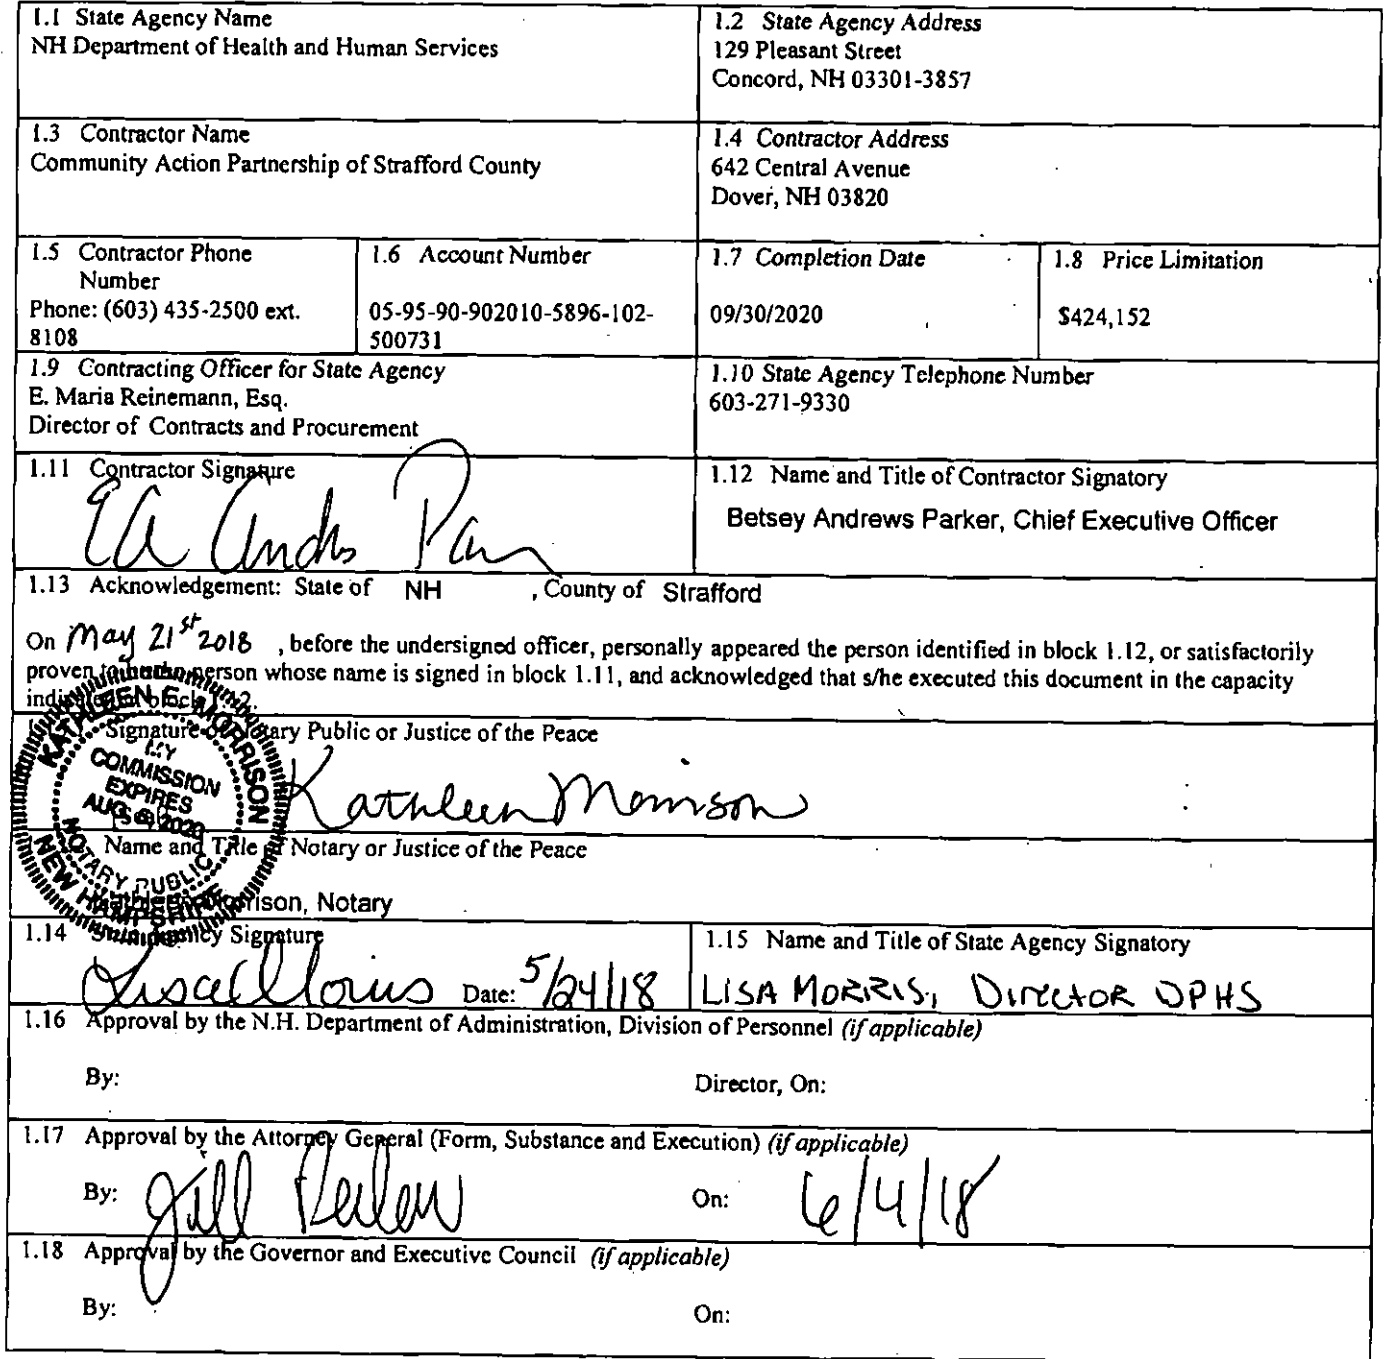 1.1 State Agency Name
NH Department of Health and Human Services
1.2 State Agency Address
129 Pleasant Street
Concord, NH 03301-3857
1.3 Contractor Name
Community Action Partnership of Strafford County
1.4 Contractor Address
642 Central Avenue
Dover, NH 03820
1.5 Contractor Phone
Number
Phone: (603) 435-2500 ext.
8108
1.6 Account Number
05-95-90-902010-5896-102-
500731
1.7 Completion Date
09/30/2020
1.8 Price Limitation
$424,152
1.9 Contracting Officer for State Agency
E. Maria Reinemann, Esq.
Director of Contracts and Procurement
1.10 State Agency Telephone Number
603-271-9330
1.11 Contractor Signature
1.12 Name and Title of Contractor Signatory
Betsey Andrews Parker, Chief Executive Officer
1.13 Acknowledgement: State of NH , County of Strafford
On May 21st 2018 , before the undersigned officer, personally appeared the person identified in block 1.12, or satisfactorily
proven person whose name is signed in block 1.11, and acknowledged that s/he executed this document in the capacity
KATHLEEN E. MORRISON
MY
COMMISSION
EXPIRES
AUG 2020
NOTARY PUBLIC
NEW HAMPSHIRE
Signature Notary Public or Justice of the Peace
Kathleen Morrison
Name and Title Notary or Justice of the Peace
Morrison, Notary
1.14 Signature
Date: 5/24/18
1.15 Name and Title of State Agency Signatory
LISA MORRIS, DIRECTOR DPHS
1.16 Approval by the N.H. Department of Administration, Division of Personnel (if applicable)
By: Director, On:
1.17 Approval by the Attorney General (Form, Substance and Execution) (if applicable)
By: Jill On: 6/4/18
1.18 Approval by the Governor and Executive Council (if applicable)
By: On: